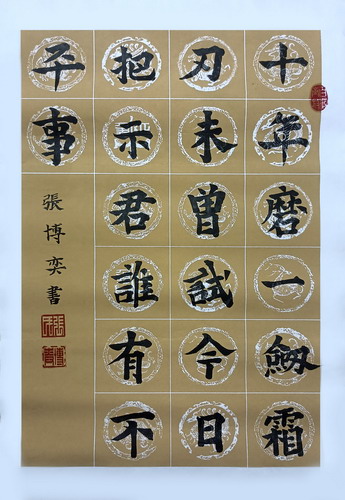 十年磨一劒霜
刃未曾試今日
把示君誰有不
平事
張博奕書